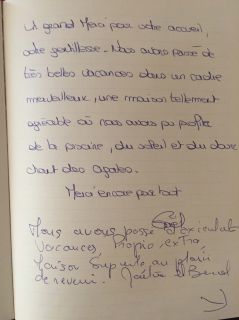 Un grand Merci pour votre accueil,
votre gentillesse. Nous avons passé de
très belles vacances dans un cadre
merveilleux, une maison tellement
agréable où nous avons pu profiter
de la piscine, du soleil et du doux
chant des cigales.
Merci encore pour tout
Nous avons passé d'excelentes
vacances Proprio extra
Maison Superbe au plaisir
de revenir. Gaëtan et